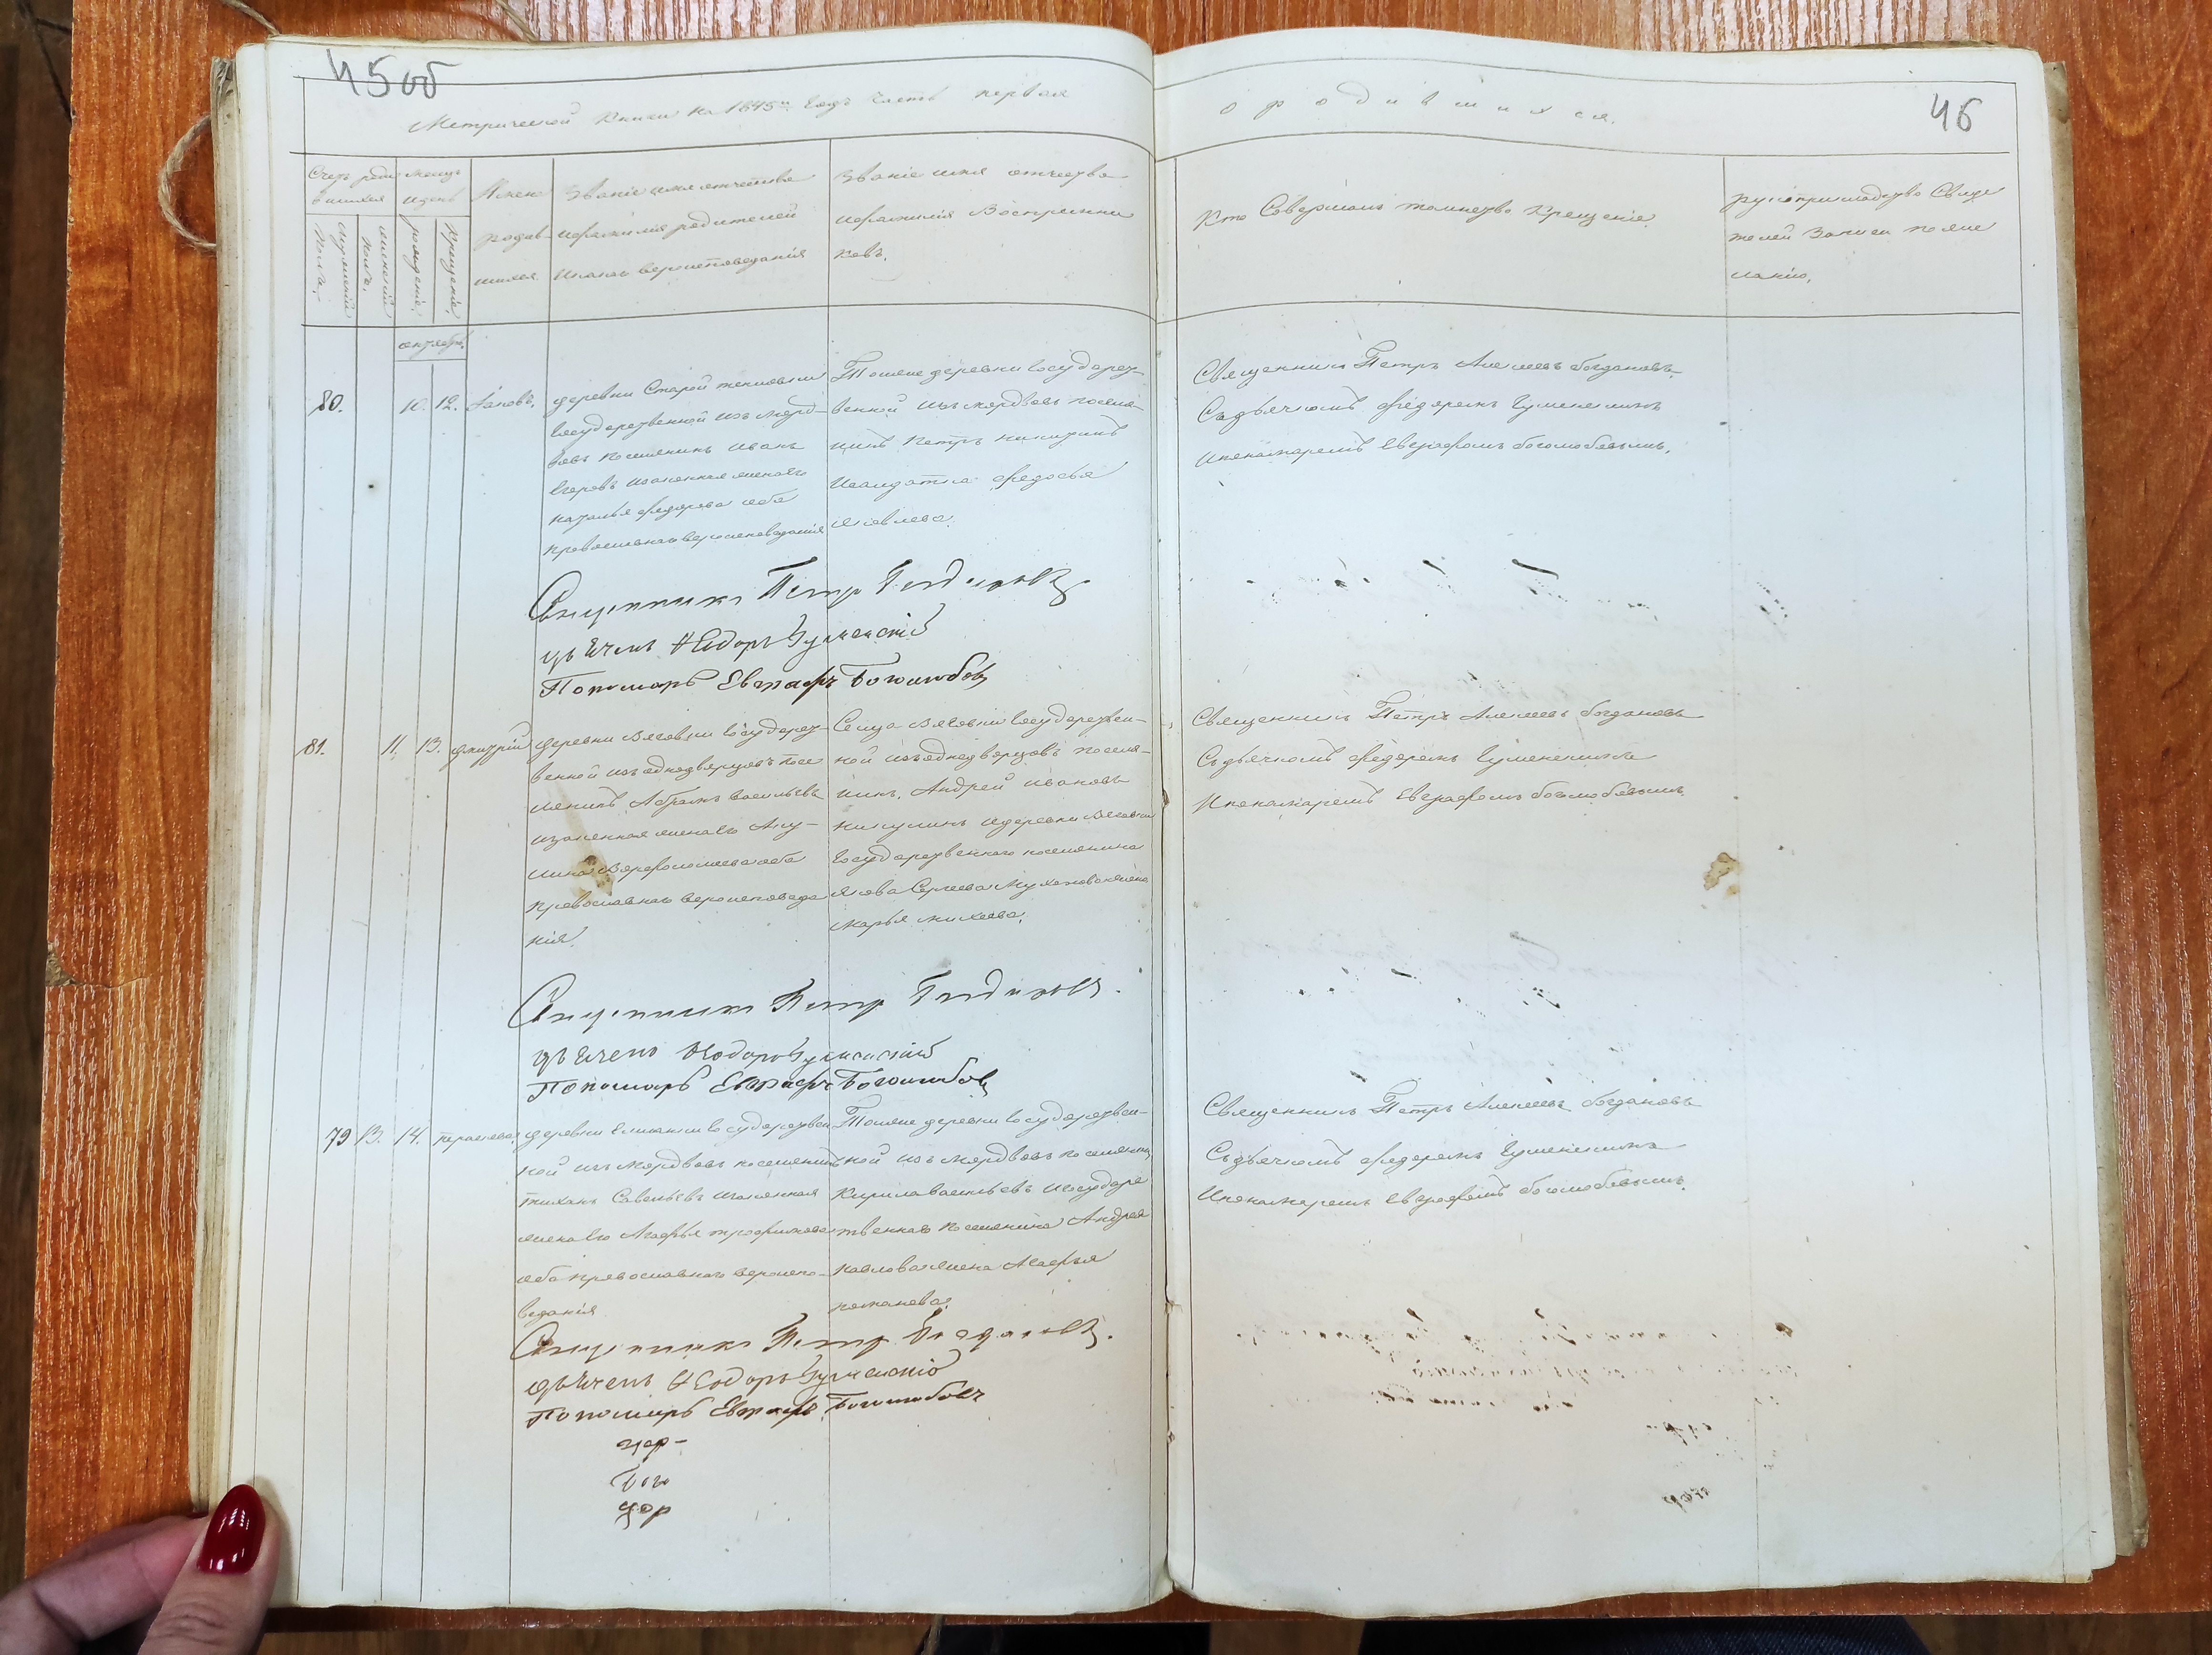 45 об
Метрической Книги на 1845й Годъ Часть первая
о родившихся.
46
Счетъ роди
вшихся
Мужескій
полъ.
женскій
полъ.
месяцъ
и день
рожденіе.
Крещеніе.
Имен
родив
шихся
Званіе имя отчество
и фамилія родителей
И какаго вероисповеданія
Званіе имя отчество
и фамилія Воспріемни
ковъ.
Кто Совершалъ таинство Крещенія.
рукоприкладство Свиде
телей Записи по же
ланію.
октябрь.
80.
10. 12.
Iаковъ,
деревни Старой
Государственной изъ морд
вовъ поселянинъ Иванъ
Егоровъ и законная жена его
Наталья Федорова оба
православнаго вероисповеданія
Тойже деревни Государст
венной изъ мордвовъ поселя
нинъ Петръ Никитинъ
И солдатка Федосья
Яковлева.
Священникъ Петръ Алексеевъ Богдановъ
Съ дьячкомъ Федоромъ Гуменскимъ
И пономаремъ Евграфомъ боголюбовымъ.
Священникъ Петръ Богдановъ
дьячекъ Ѳеодоръ Гуменскій
Пономарь Евграфъ Боголюбовъ
81.
11. 13.
Дмитрій
деревни Вязовки Государст
венной изъ однодворцовъ посе
лянинъ Абрамъ Васильевъ
и законная жена его Аку
лина Варфоломеева оба
православнаго вероисповеда
нія.
Сельца Вязовки Государствен
ной изъ однодворцовъ поселя
нинъ, Андрей Ивановъ
Никулинъ и деревни Вязовки
Государственнаго поселянина
Якова Сергеева жена
Марья Михеева.
Священникъ Петръ Алексеевъ Богдановъ
Съ дьячкомъ Федоромъ Гуменскимъ
И пономаремъ Евграфомъ боголюбовымъ.
Священникъ Петръ Богдановъ.
дьячекъ Ѳеодоръ Гуменскій
Пономарь Евграфъ Боголюбовъ
79
13. 14.
параскева
деревни Елшанки Государствен
ной изъ мордвовъ поселянинъ
Тихонъ Савельевъ и законная
жена его Агафья Трофимова
оба православнаго вероиспо
веданія
Тойже деревни Государствен
ной изъ мордвовъ поселянинъ
Кирила Васильевъ и Государ
ственнаго поселянина Андрея
Павлова жена Агафья
Священникъ Петръ Алексеевъ Богдановъ
Съ дьячкомъ Федоромъ Гуменскимъ
И пономаремъ Евграфомъ боголюбовымъ.
Священникъ Петръ Богдановъ.
дьячекъ Ѳеодоръ Гуменскій
Пономарь Евграфъ Боголюбовъ